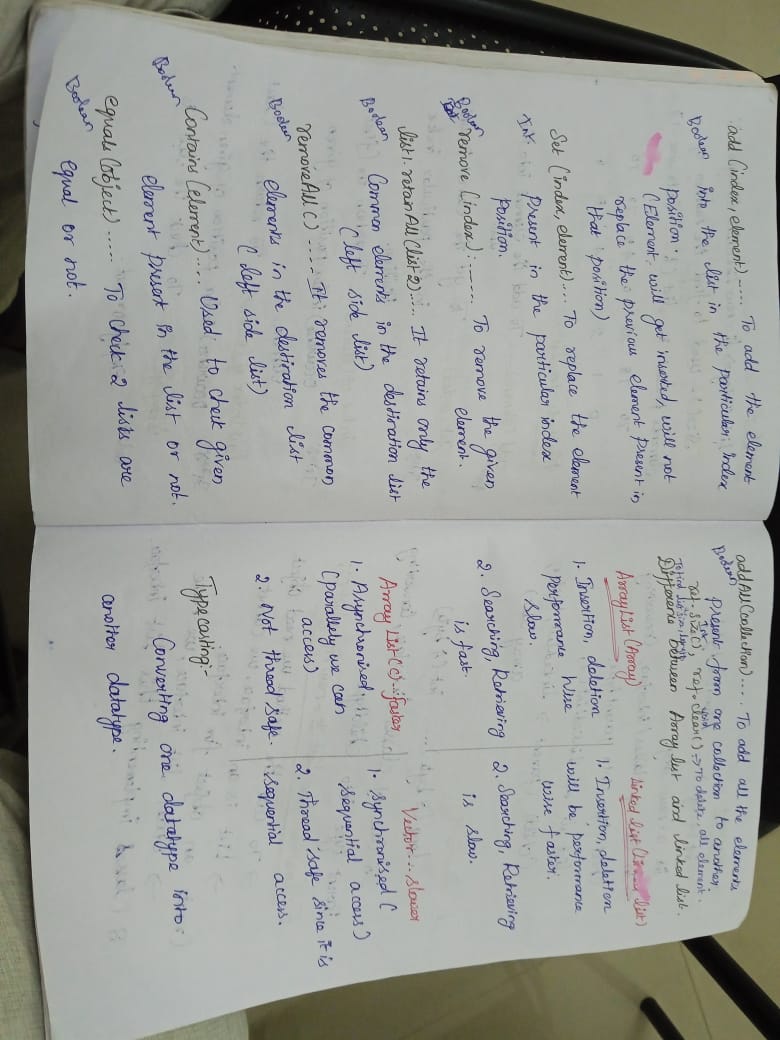 add (index, element) ---- To add the element
Boolean into the list in the particular index
position.
(Element will get inserted, will not
replace the previous element present in
that position)
Set (index, element).... To replace the element
Int. Present in the particular index
Position.
Boolean
remove (index):------ To remove the given
element.
list1.retainAll(list2).... It retains only the
Boolean Common elements in the destination list
(left side list)
removeAll() .... It removes the common
Boolean elements in the destination list
(left side list)
Contains (element).... Used to check given
Boolean element present in the list or not.
equals (object) ..... To check 2 lists are
Boolean equal or not.
addAll(collection).... To add all the elements
Boolean present from one collection to another.
Int void
ref.size(), ref.clear() => To delete all element.
To find list size, length
Difference between Array list and linked list.
ArrayList (Array)
1. Insertion, deletion
Performance wise
slow.
2. Searching, Retrieving
is fast.
Linked list (Linked list)
1. Insertion, deletion
will be performance
wise faster.
2. Searching, Retrieving
is slow.
Array List (C)...faster
1. Asynchronised.
(parallely we can
access)
2. Not thread safe.
Vector... slower
1. Synchronised (
sequential access)
2. Thread safe since it is
sequential access.
Typecasting:-
Converting one datatype into
another datatype.